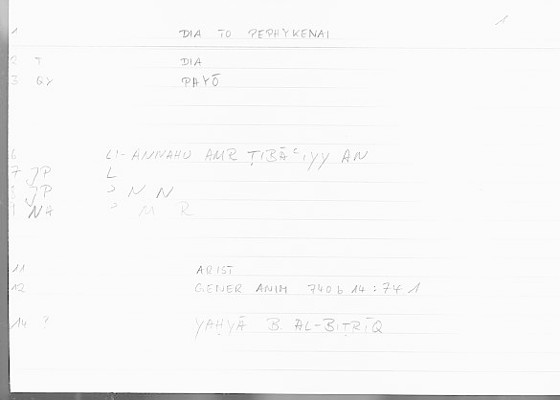 1 DIA TO PEPHYKENAI 1
2 T DIA
3 GY PAYŌ
6 LI-ANNAHU AMR ṬIBĀʿIYY AN
7 JP L
JP ʾ N N
NA ʾ M R
11 ARIST
12 GENER ANIM 740 b 14 : 74 1
14 ? YAḤYĀ B. AL-BIṬRĪQ